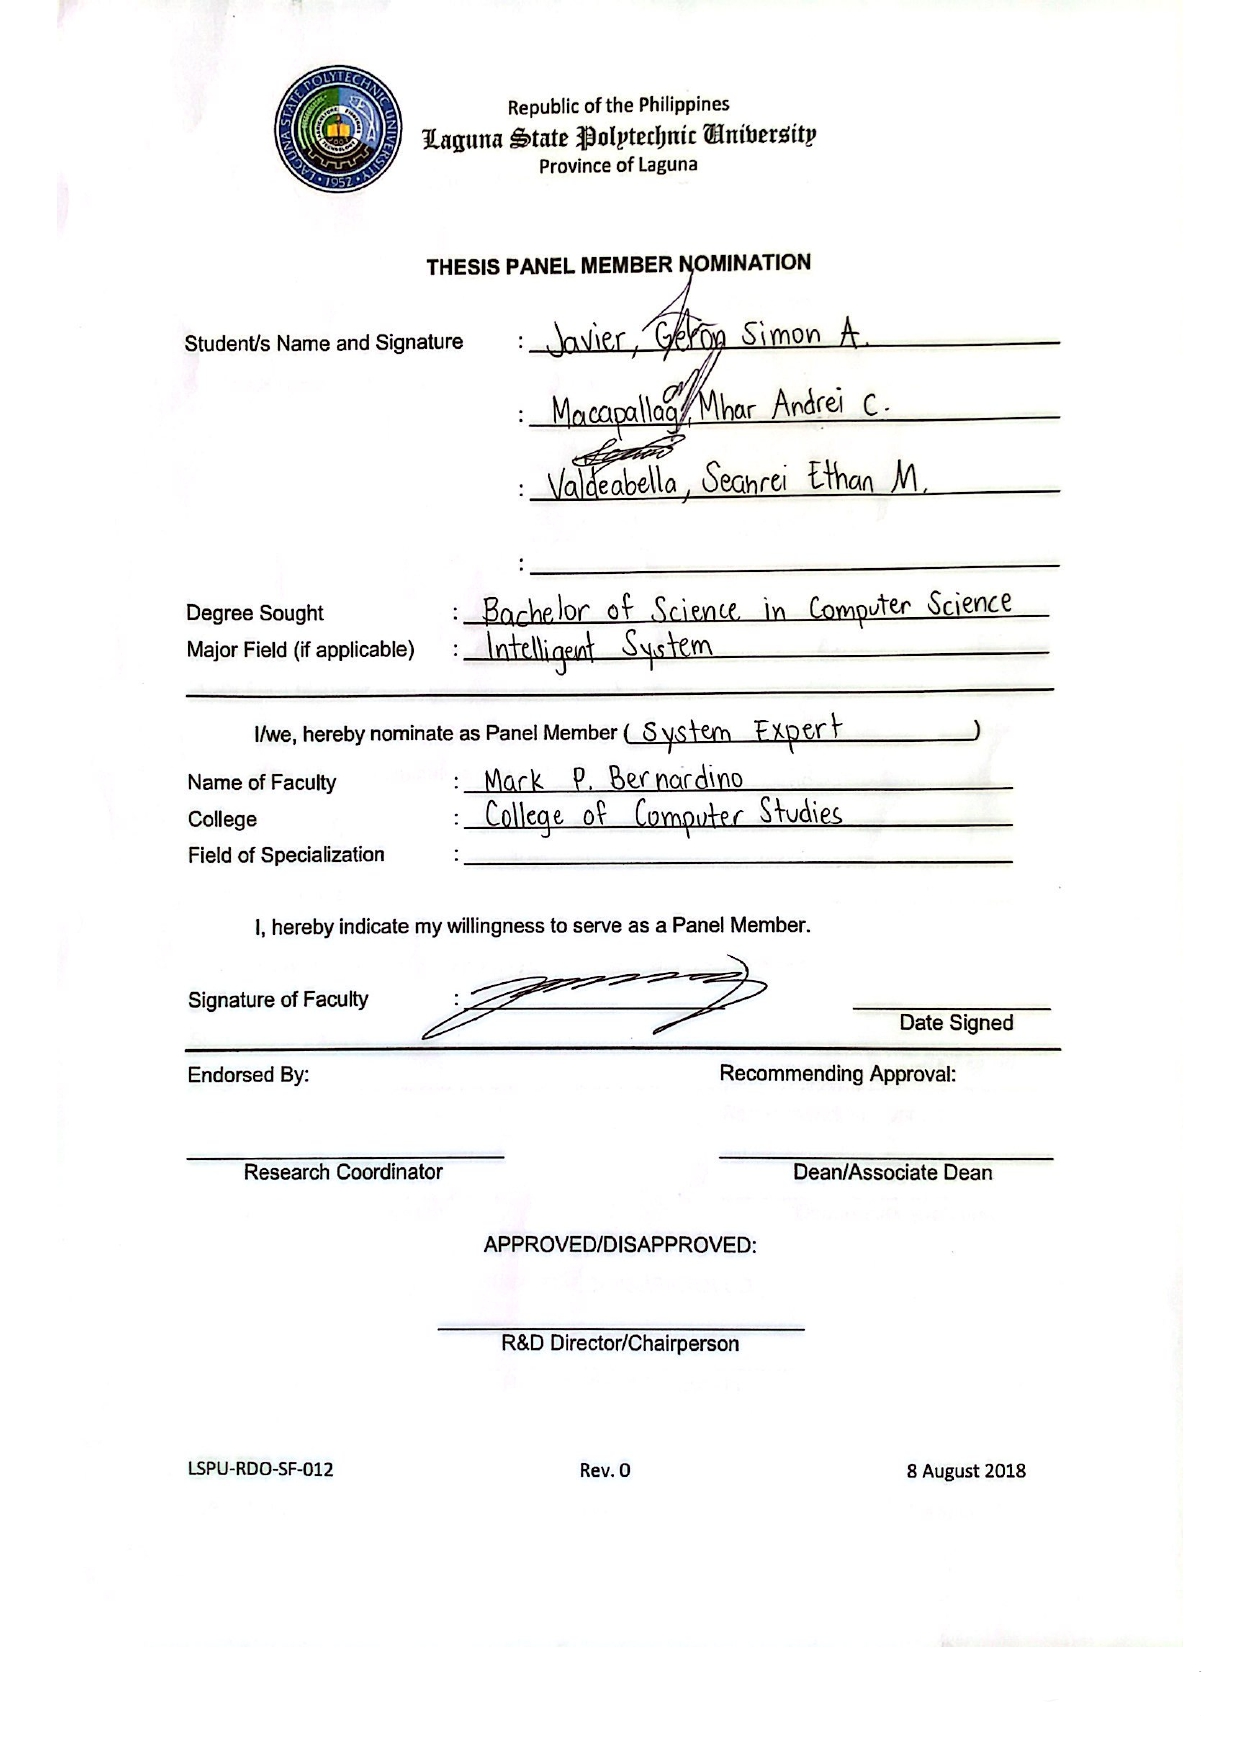 LAGUNA STATE POLYTECHNIC UNIVERSITY
1952
Republic of the Philippines
Laguna State Polytechnic University
Province of Laguna
THESIS PANEL MEMBER NOMINATION
Student/s Name and Signature : Javier, Geron Simon A.
: Macapallag, Mhar Andrei C.
: Valdeabella, Seanrei Ethan M.
:
Degree Sought : Bachelor of Science in Computer Science
Major Field (if applicable) : Intelligent System
I/we, hereby nominate as Panel Member ( System Expert )
Name of Faculty : Mark P. Bernardino
College : College of Computer Studies
Field of Specialization :
I, hereby indicate my willingness to serve as a Panel Member.
Signature of Faculty :
Date Signed
Endorsed By: Recommending Approval:
Research Coordinator Dean/Associate Dean
APPROVED/DISAPPROVED:
R&D Director/Chairperson
LSPU-RDO-SF-012 Rev. 0 8 August 2018